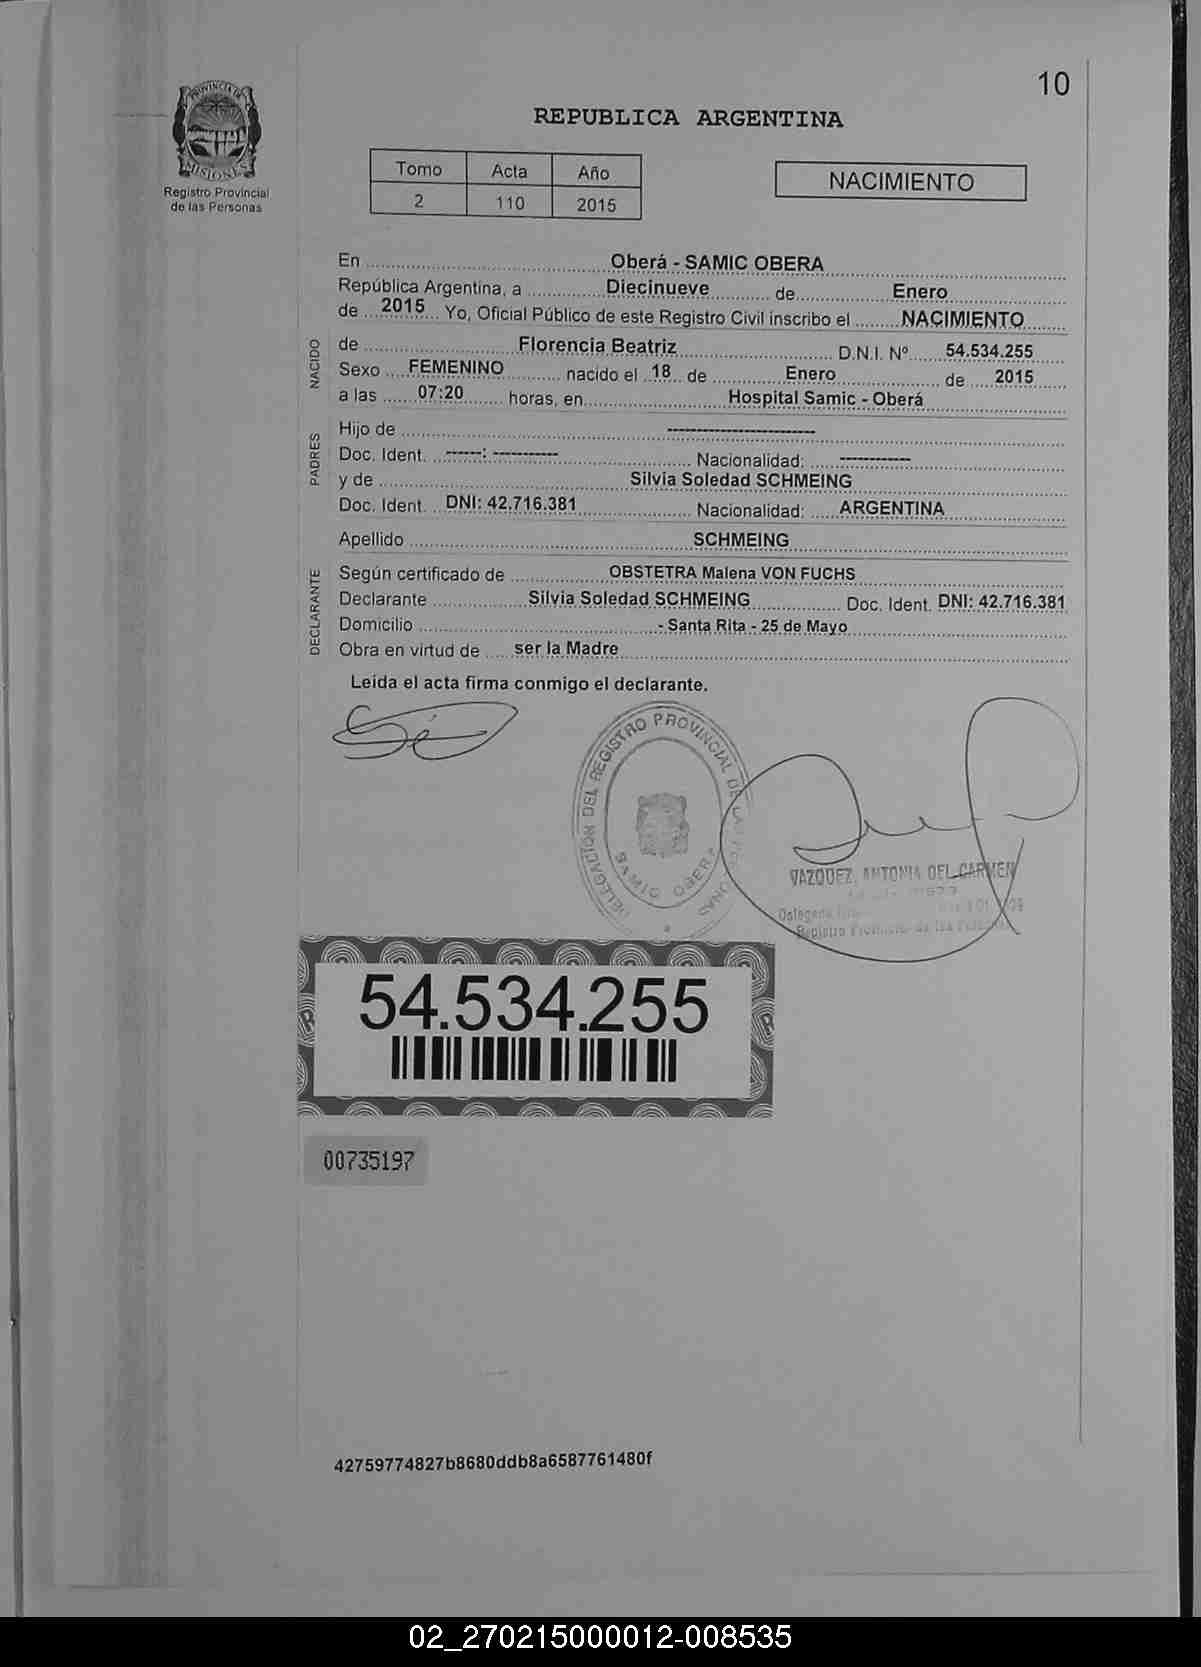 10
PROVINCIA DE
MISIONES
Registro Provincial
de las Personas
REPUBLICA ARGENTINA
Tomo Acta Año
2 110 2015
NACIMIENTO
En Oberá - SAMIC OBERA
República Argentina, a Diecinueve de Enero
de 2015 Yo, Oficial Público de este Registro Civil inscribo el NACIMIENTO
NACIDO
de Florencia Beatriz D.N.I. Nº 54.534.255
Sexo FEMENINO nacido el 18 de Enero de 2015
a las 07:20 horas, en Hospital Samic - Oberá
PADRES
Hijo de -------------------------
Doc. Ident. ------: ----------- Nacionalidad: ------------
y de Silvia Soledad SCHMEING
Doc. Ident. DNI: 42.716.381 Nacionalidad: ARGENTINA
Apellido SCHMEING
DECLARANTE
Según certificado de OBSTETRA Malena VON FUCHS
Declarante Silvia Soledad SCHMEING Doc. Ident. DNI: 42.716.381
Domicilio - Santa Rita - 25 de Mayo
Obra en virtud de ser la Madre
Leida el acta firma conmigo el declarante.
DELEGACIÓN DEL REGISTRO PROVINCIAL DE LAS
SAMIC OBERA
VAZQUEZ, ANTONIA DEL CARMEN
Registro Provincial de las Personas
54.534.255
00735197
42759774827b8680ddb8a6587761480f
02_270215000012-008535